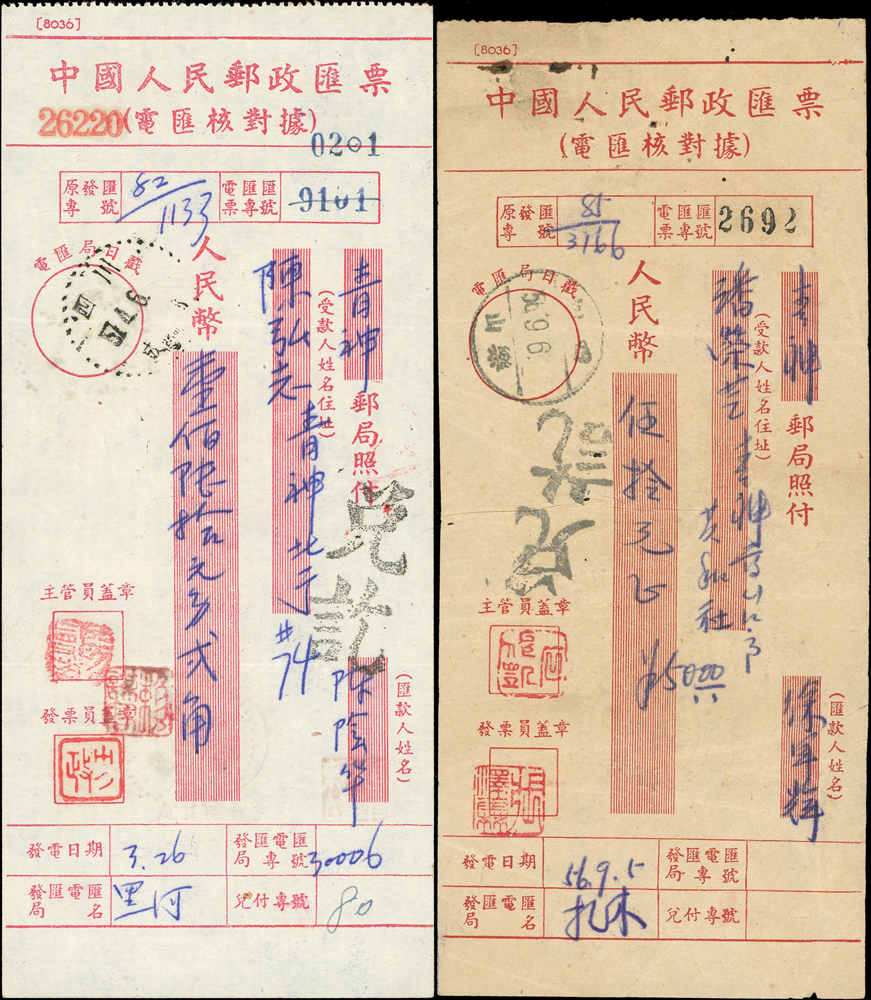 [8036]
中國人民郵政匯票
26220(電匯核對據)
0201
原發匯專號
82/1133
電匯匯票專號
9101
電匯局日戳
四川
57.4.6
人民幣
壹佰陸拾元另貳角
(受款人姓名住址)
陳弘志 青神北于
#74
青神 郵局照付
兌訖
主管員蓋章
發票員蓋章
(匯款人姓名)
陳陰華
發電日期
3.26
發匯電匯局專號
30006
發匯電匯局名
黑河
兌付專號
80
[8036]
中國人民郵政匯票
(電匯核對據)
原發匯專號
85/3166
電匯匯票專號
2692
電匯局日戳
56.9.6
人民幣
伍拾元正
¥5000
(受款人姓名住址)
潘榮芝 青神
共和社
青神 郵局照付
兌訖
主管員蓋章
發票員蓋章
(匯款人姓名)
發電日期
56.9.5
發匯電匯局專號
發匯電匯局名
扎木
兌付專號